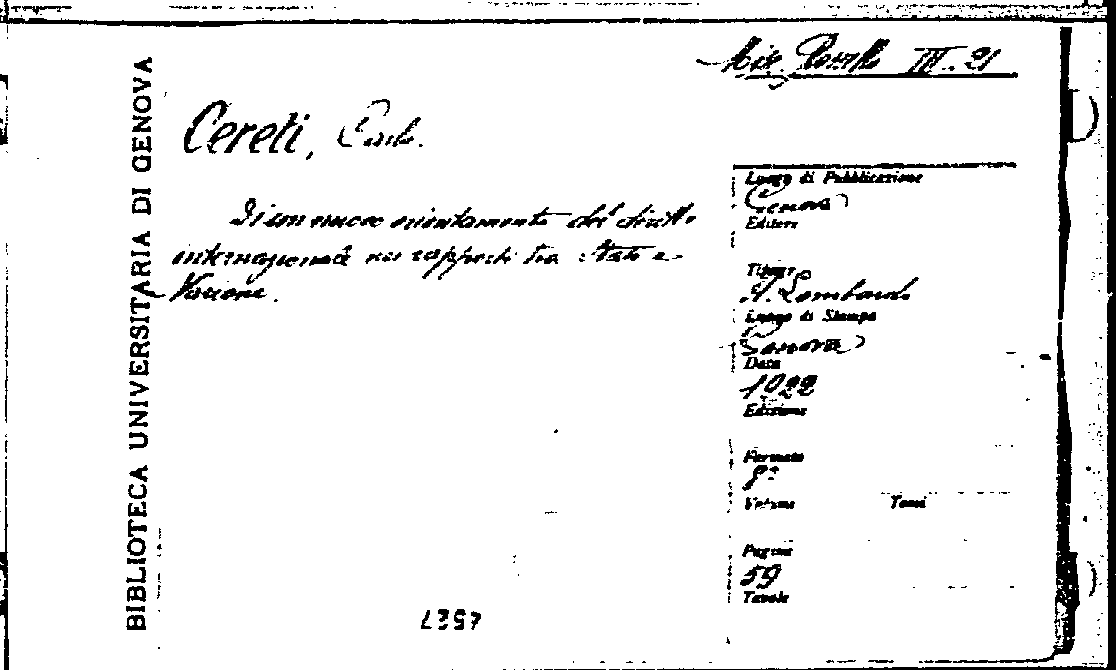 BIBLIOTECA UNIVERSITARIA DI GENOVA
III. 21
Cereti, Carlo.
Di un nuovo orientamento del diritto
internazionale nei rapporti tra Stato e
Nazione.
Luogo di Pubblicazione
Genova
Editore
Tipogr.
A. Lombardo
Luogo di Stampa
Genova
Data
1922
Edizione
Formato
8º
Volume Tomi
Pagine
59
Tavole